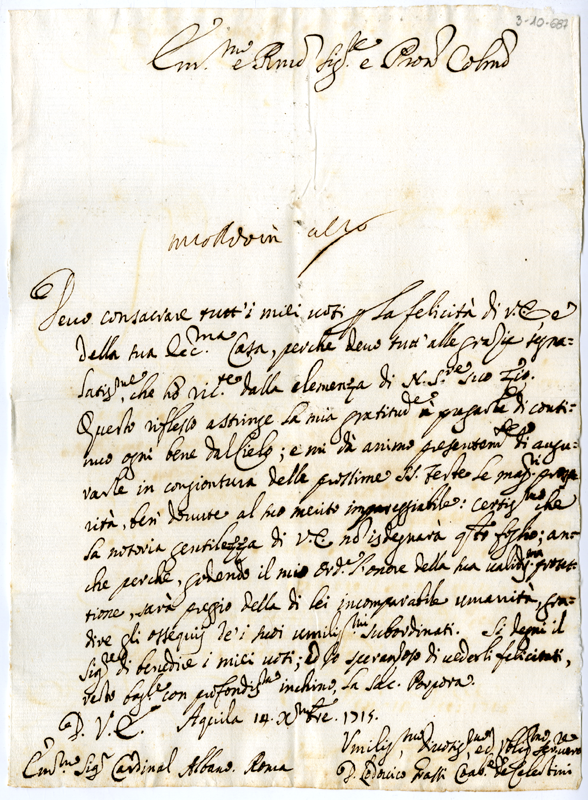 3-10-687
Em.mo e Rmo Sig.re e Pron Colmo
Devo consacrare tutt'i miei voti p la felicità di V.E. e
della sua Ecc.ma Casa, perche devo tutt'alle grazie segna-
latis.me, che hò ric.te dalla clemenza di N. S.re suo Zio.
Questo riflesso astringe la mia gratitud.e a pregarle di conti-
nuo ogni bene dal Cielo; e mi dà animo presentem.te di augu-
rarle in congiontura delle prossime S. Feste le mag.ri prospe-
rità, ben dovute al suo merito impareggiabile: certis.mo che
la notoria gentilezza di V.E. nō isdegnarà q.to foglio; an-
che perche, godendo il mio Ord.e l'onore della sua validis.ma protet-
tione, sarà preggio della di lei incomparabile umanità, gra-
dire gli ossequij de i suoi umilis.mi subordinati. Si degni il
Sig.re di benedire i miei voti; ed io speranzoso di vederli felicitati,
resto bag.le con profondis.mo inchino, la Sac. Porpora.
D. V. E. Aquila 14. Xmbre. 1715.
Umilis.mo, Divotis.mo, ed Oblig.mo Servitore
Em.mo Sig.r Cardinal Albano. Roma
D. Lodovico Grassi Abb.e de Celestini